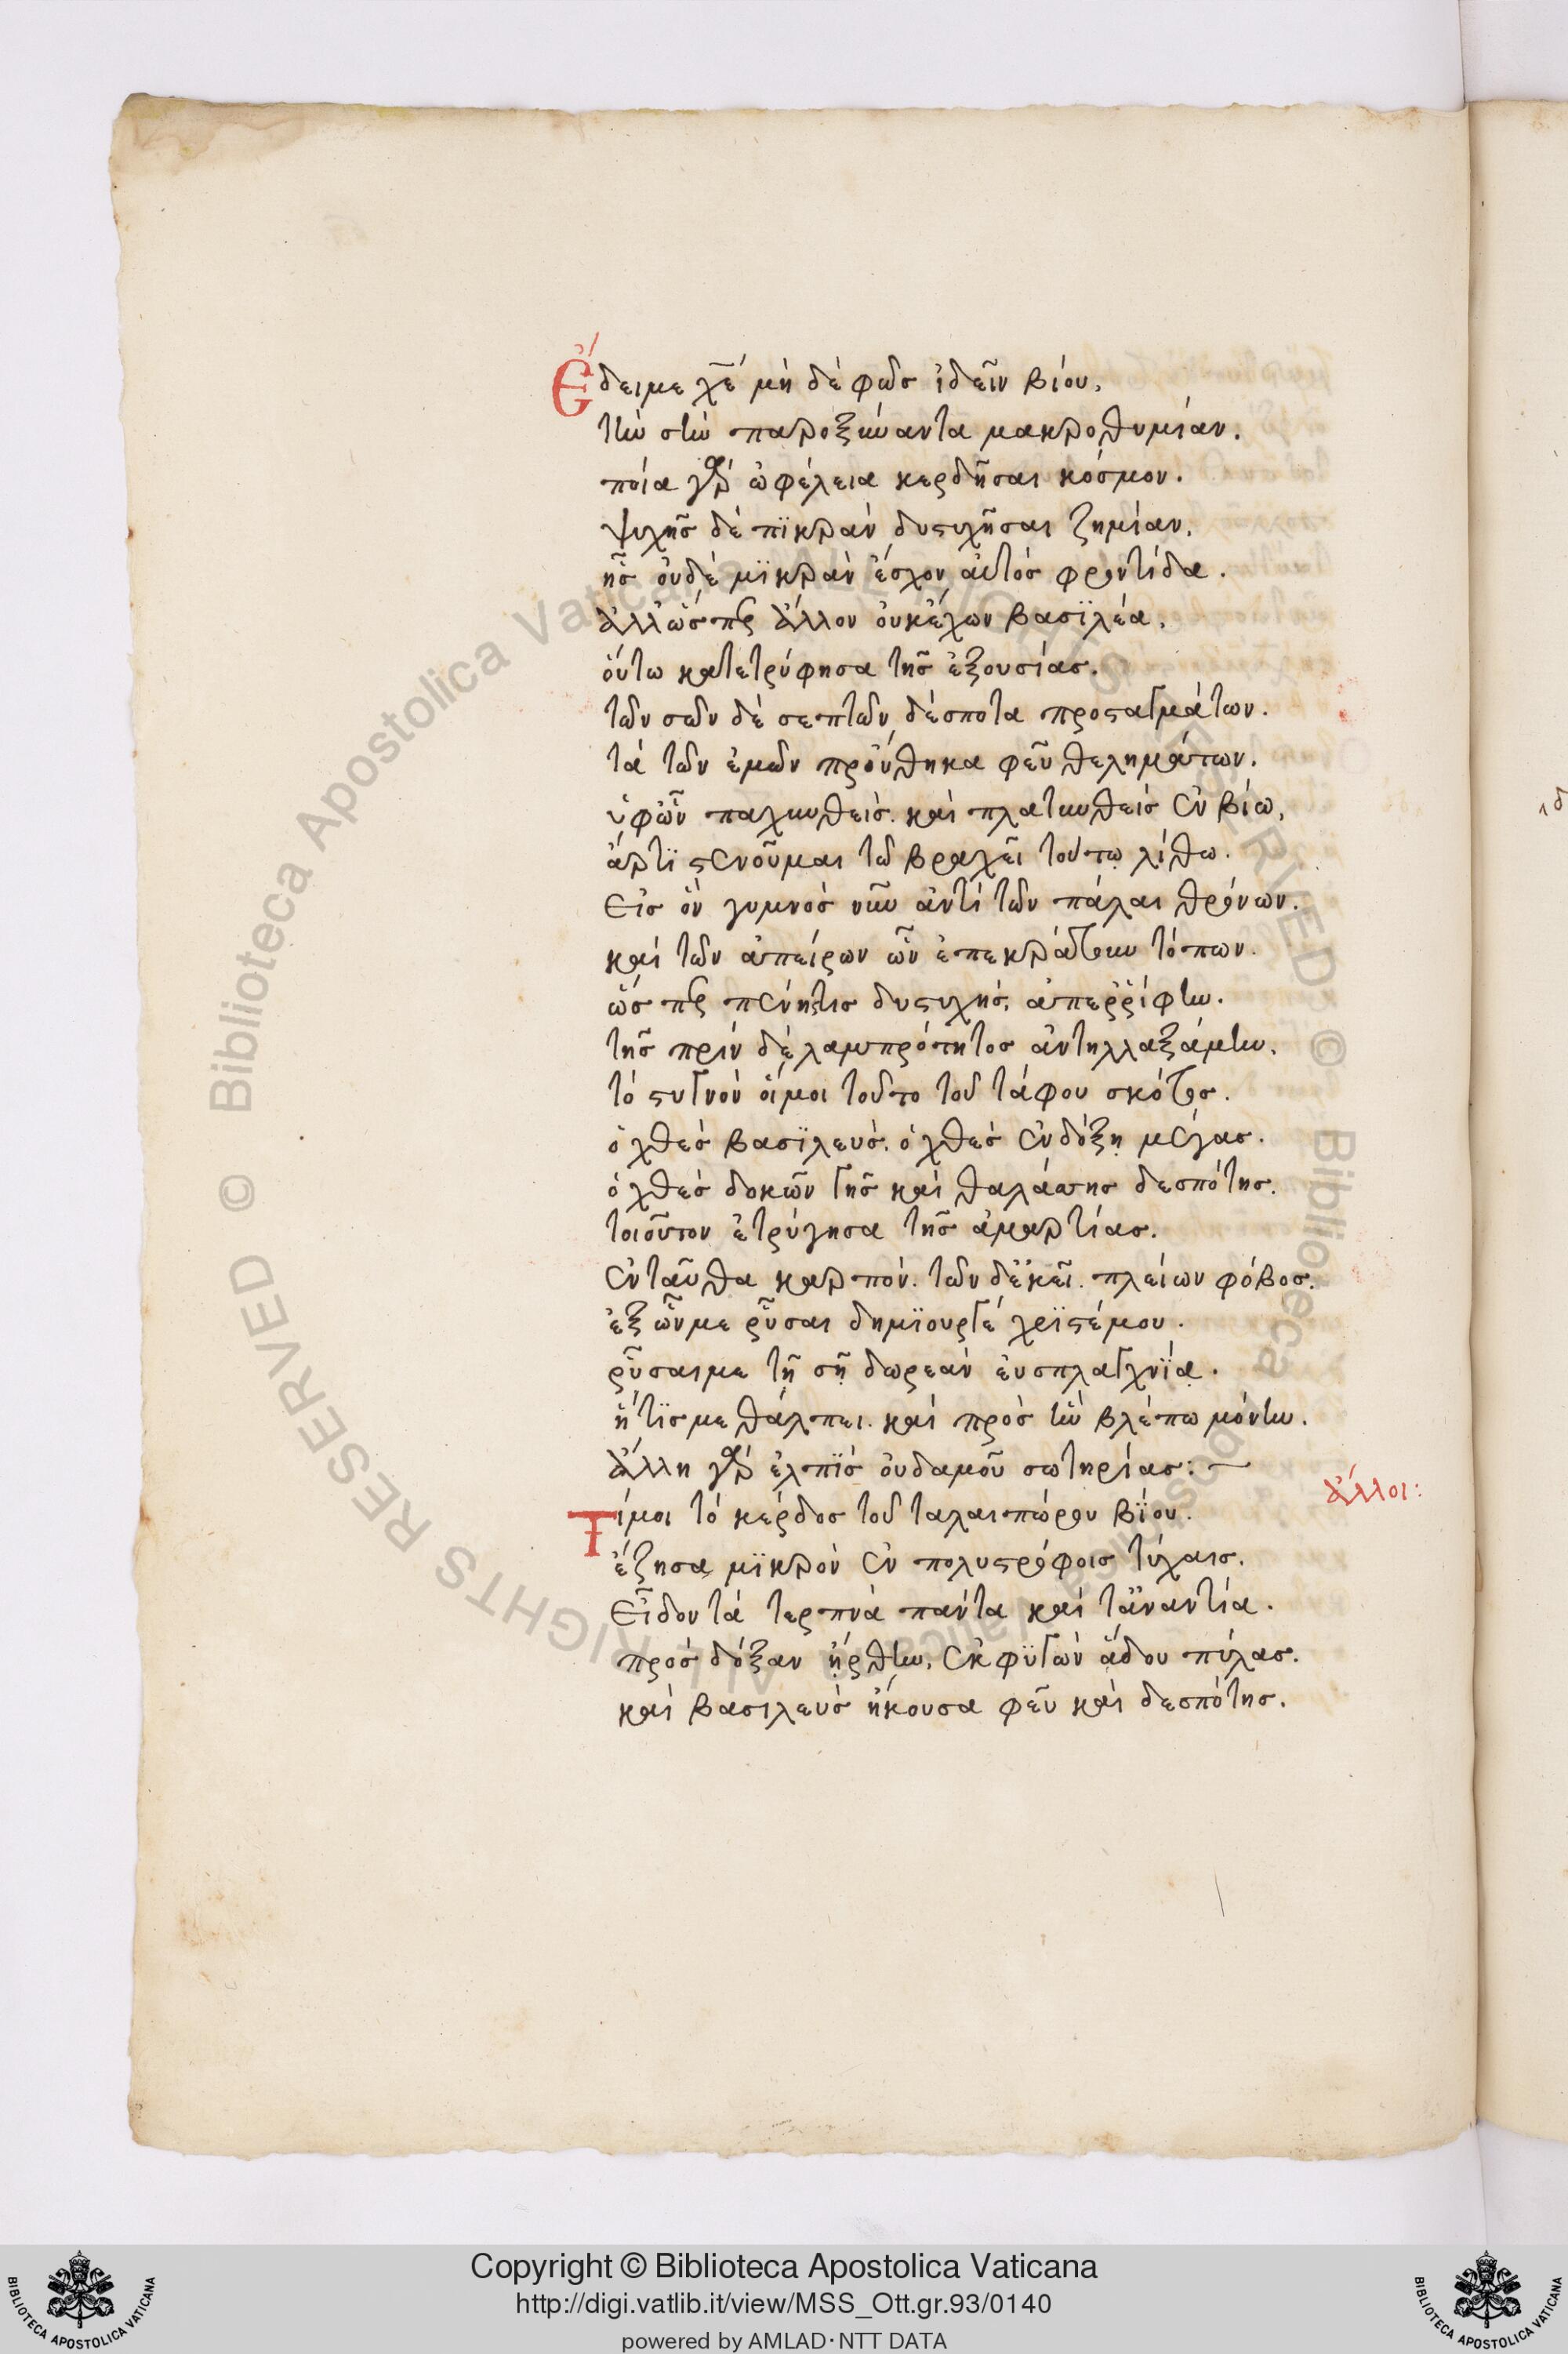 Ἔδειμε χε μὴ δὲ φῶς ἰδεῖν βίου,
τὴν σὴν παροξύναντα μακροθυμίαν.
ποία γὰρ ὠφέλεια κερδῆσαι κόσμον.
ψυχῆς δὲ πϊκρὰν δυστυχῆσαι ζημίαν,
ἧς οὐδὲ μϊκρὰν ἔσχον αὐτὸς φροντίδα.
ἀλλὥσπερ ἄλλον οὐκἔχων βασϊλέα,
οὕτω κατετρύφησα τῆς ἐξουσίας.
τῶν σῶν δὲ σεπτῶν δέσποτα προσταγμάτων.
τὰ τῶν ἐμῶν προὔθηκα φεῦ θελημάτων.
ὑφὧν παχυνθεὶς. καὶ πλατυνθεὶς ἐν βίω,
ἄρτϊ στενοῦμαι τῶ βραχεῖ τούτῳ λίθω.
Εἰς ὃν γυμνὸς νῦν ἀντὶ τῶν πάλαι θρόνων.
καὶ τῶν ἀπείρων ὧν ἐπεκράτουν τόπων.
ὥσπερ πένητις δυστυχής, ἀπερρίφην.
τῆς πρὶν δὲ λαμπρότητος ἀντηλλαξάμην,
τὸ στυγνὸν οἴμοι τοῦτο τοῦ τάφου σκότος.
ὁ χθὲς βασϊλεὺς. ὁ χθὲς ἐνδόξῃ μέγας.
ὁ χθὲς δοκῶν γῆς καὶ θαλάσσης δεσπότης.
τοιοῦτον ἐτρύγησα τῆς ἁμαρτίας.
ἐνταῦθα καρπόν. τῶν δἐκεῖ. πλείων φόβος.
ἐξ ὧνμε ῥῦσαι δημϊουργέ χρϊστέμου.
ῥῦσαιμε τῇ σῇ δωρεὰν εὐσπλαγχνίᾳ.
ἥτϊς με θάλπει. καὶ πρὸς ἣν βλέπω μόνην.
ἄλλη γὰρ ἐλπὶς οὐδαμοῦ σωτηρίας:
ἄλλοι:
Τίμοι τὸ κέρδος τοῦ ταλαιπώρου βϊου.
ἔζησα μϊκρὸν ἐν πολυστρόφοις τύχαις.
Εἶδον τὰ τερπνὰ πάντα καὶ τἀναντία.
πρὸς δόξαν ᾔρθην, ἐκφϋγὼν ἅδου πύλας.
καὶ βασιλεὺς ἤκουσα φεῦ καὶ δεσπότης.
Copyright © Biblioteca Apostolica Vaticana
http://digi.vatlib.it/view/MSS_Ott.gr.93/0140
powered by AMLAD·NTT DATA
BIBLIOTECA APOSTOLICA VATICANA
BIBLIOTECA APOSTOLICA VATICANA
© Biblioteca Apostolica Vaticana ALL RIGHTS RESERVED © Biblioteca Apostolica Vaticana ALL RIGHTS RESERVED